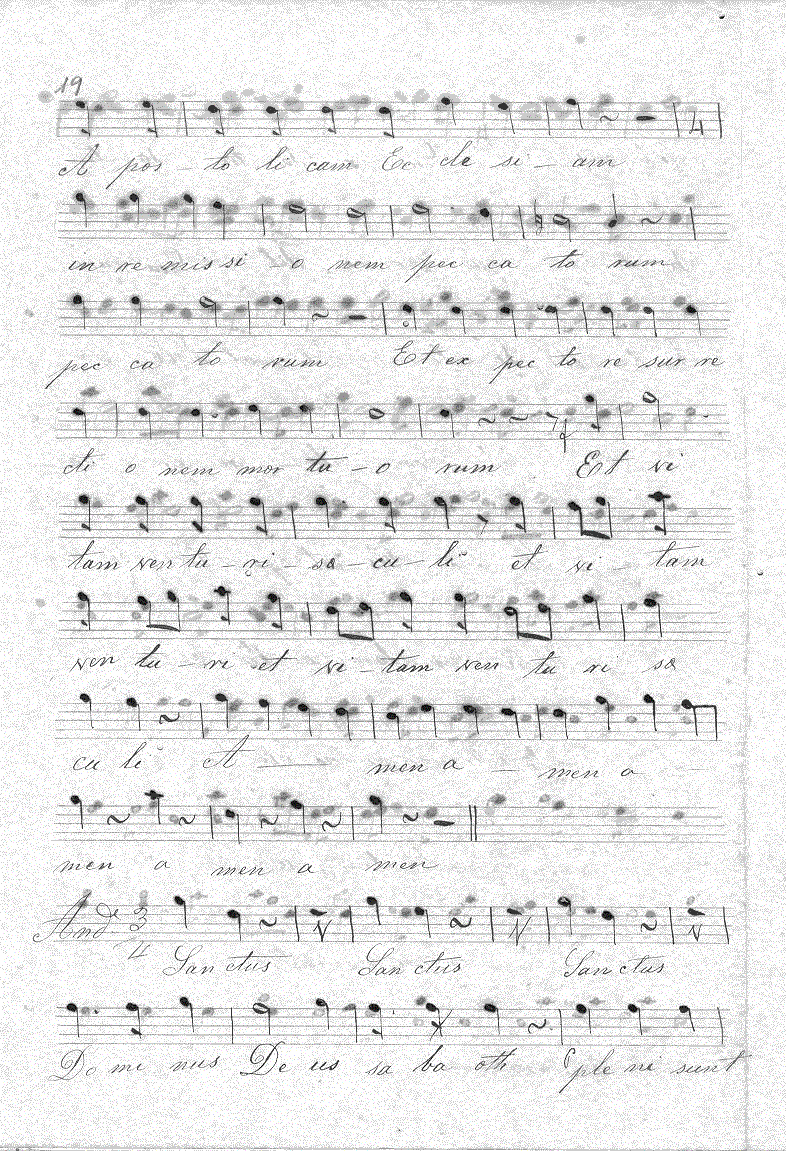 19
A pos - to li cam Ec cle si - am
4
in re mis si - o nem pec ca to rum
pec ca to rum Et ex pec to re sur re
cti o nem mor tu - o rum Et vi
tam ven tu - ri - sæ - cu - li et vi - tam
ven tu - ri et vi - tam ven tu ri sæ
cu li A - men a - men a
men a men a men
And.e 3/4
Sanctus Sanctus Sanctus
Do mi nus De us sa ba oth ple ni sunt